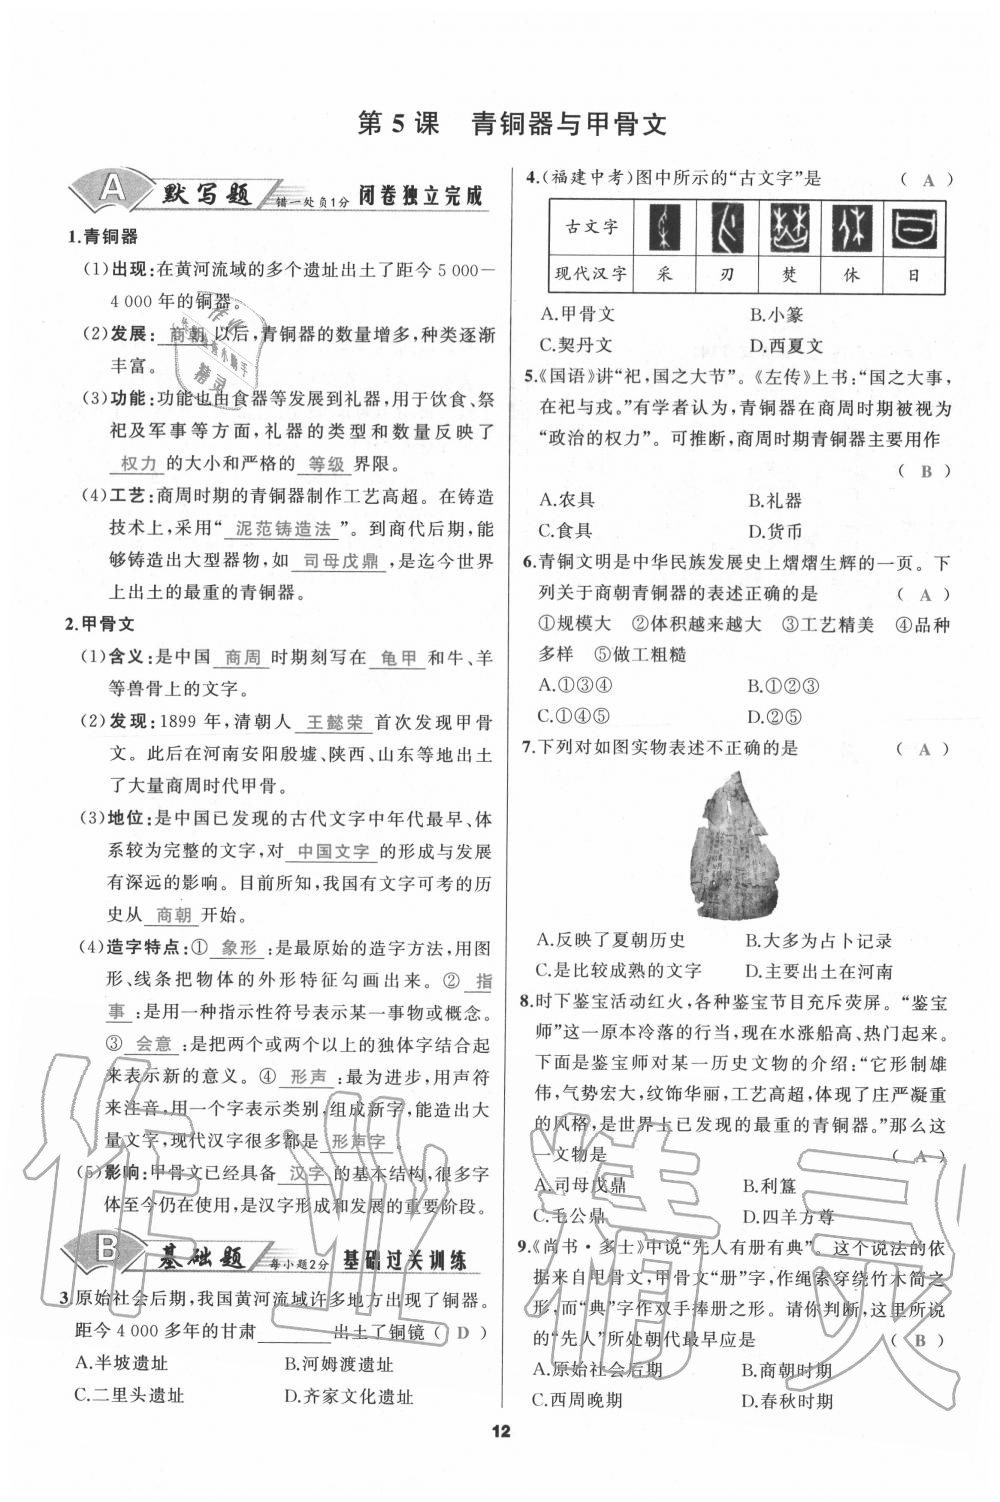 第5课 青铜器与甲骨文
A 默写题 错一处负1分 闭卷独立完成
1.青铜器
(1)出现:在黄河流域的多个遗址出土了距今5 000—
4 000年的铜器。
(2)发展: 商朝 以后,青铜器的数量增多,种类逐渐
丰富。
(3)功能:功能也由食器等发展到礼器,用于饮食、祭
祀及军事等方面,礼器的类型和数量反映了
权力 的大小和严格的 等级 界限。
(4)工艺:商周时期的青铜器制作工艺高超。在铸造
技术上,采用“ 泥范铸造法 ”。到商代后期,能
够铸造出大型器物,如 司母戊鼎 ,是迄今世界
上出土的最重的青铜器。
2.甲骨文
(1)含义:是中国 商周 时期刻写在 龟甲 和牛、羊
等兽骨上的文字。
(2)发现:1899年,清朝人 王懿荣 首次发现甲骨
文。此后在河南安阳殷墟、陕西、山东等地出土
了大量商周时代甲骨。
(3)地位:是中国已发现的古代文字中年代最早、体
系较为完整的文字,对 中国文字 的形成与发展
有深远的影响。目前所知,我国有文字可考的历
史从 商朝 开始。
(4)造字特点:① 象形 :是最原始的造字方法,用图
形、线条把物体的外形特征勾画出来。② 指
事 :是用一种指示性符号表示某一事物或概念。
③ 会意 :是把两个或两个以上的独体字结合起
来表示新的意义。④ 形声 :最为进步,用声符
来注音,用一个字表示类别,组成新字,能造出大
量文字,现代汉字很多都是 形声字 。
(5)影响:甲骨文已经具备 汉字 的基本结构,很多字
体至今仍在使用,是汉字形成和发展的重要阶段。
B 基础题 每小题2分 基础过关训练
3.原始社会后期,我国黄河流域许多地方出现了铜器。
距今4 000多年的甘肃________出土了铜镜( D )
A.半坡遗址 B.河姆渡遗址
C.二里头遗址 D.齐家文化遗址
4.(福建中考)图中所示的“古文字”是 ( A )
古文字
现代汉字 采 刃 焚 休 日
A.甲骨文 B.小篆
C.契丹文 D.西夏文
5.《国语》讲“祀,国之大节”。《左传》上书:“国之大事,
在祀与戎。”有学者认为,青铜器在商周时期被视为
“政治的权力”。可推断,商周时期青铜器主要用作
( B )
A.农具 B.礼器
C.食具 D.货币
6.青铜文明是中华民族发展史上熠熠生辉的一页。下
列关于商朝青铜器的表述正确的是 ( A )
①规模大 ②体积越来越大 ③工艺精美 ④品种
多样 ⑤做工粗糙
A.①③④ B.①②③
C.①④⑤ D.②⑤
7.下列对如图实物表述不正确的是 ( A )
A.反映了夏朝历史 B.大多为占卜记录
C.是比较成熟的文字 D.主要出土在河南
8.时下鉴宝活动红火,各种鉴宝节目充斥荧屏。“鉴宝
师”这一原本冷落的行当,现在水涨船高、热门起来。
下面是鉴宝师对某一历史文物的介绍:“它形制雄
伟,气势宏大,纹饰华丽,工艺高超,体现了庄严凝重
的风格,是世界上已发现的最重的青铜器。”那么这
一文物是 ( A )
A.司母戊鼎 B.利簋
C.毛公鼎 D.四羊方尊
9.《尚书·多士》中说“先人有册有典”。这个说法的依
据来自甲骨文,甲骨文“册”字,作绳索穿绕竹木简之
形,而“典”字作双手捧册之形。请你判断,这里所说
的“先人”所处朝代最早应是 ( B )
A.原始社会后期 B.商朝时期
C.西周晚期 D.春秋时期
12
作业精灵